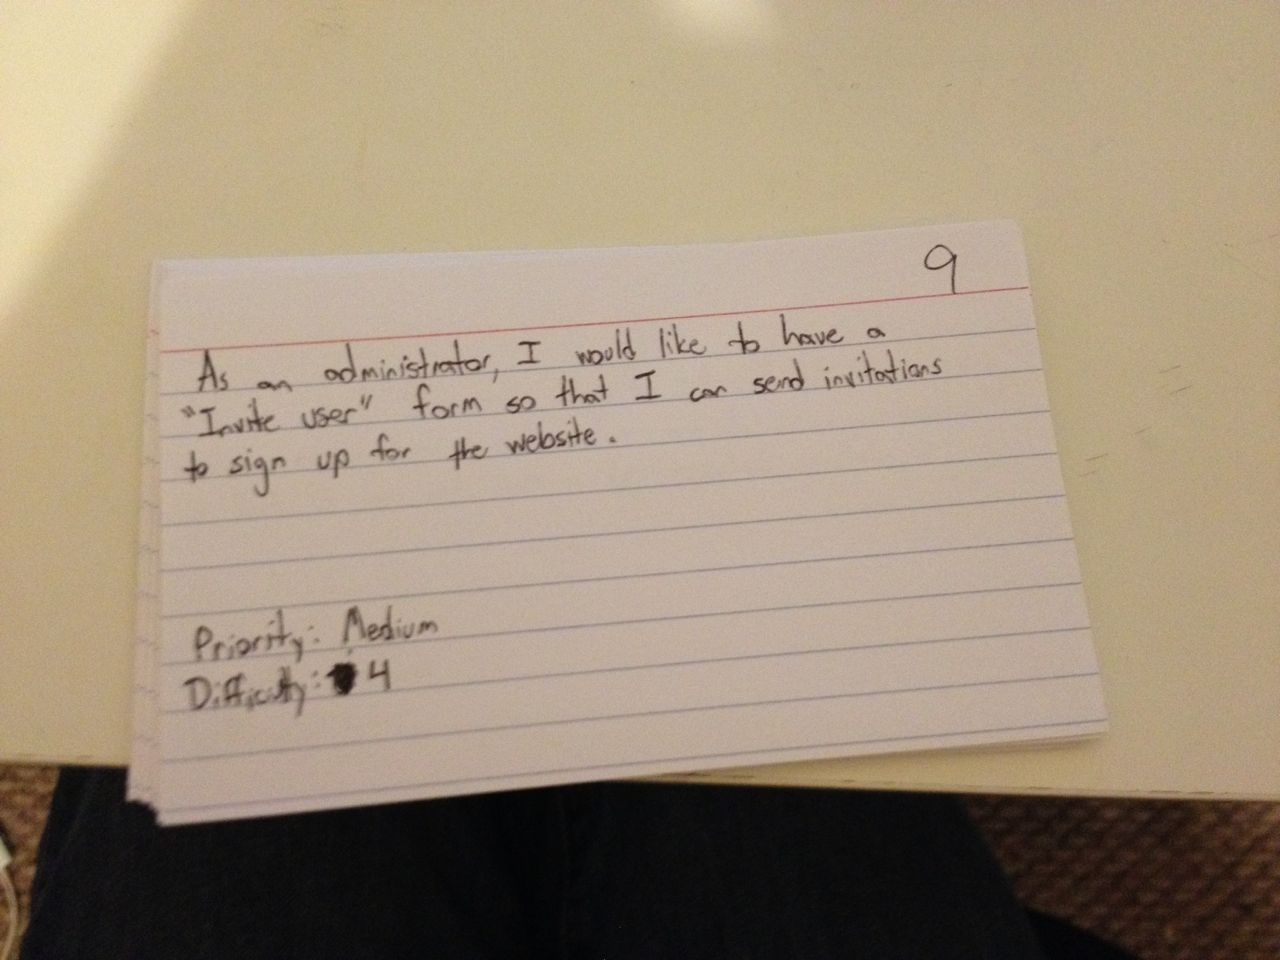 9
As an administrator, I would like to have a
"Invite user" form so that I can send invitations
to sign up for the website.
Priority: Medium
Difficulty: 4